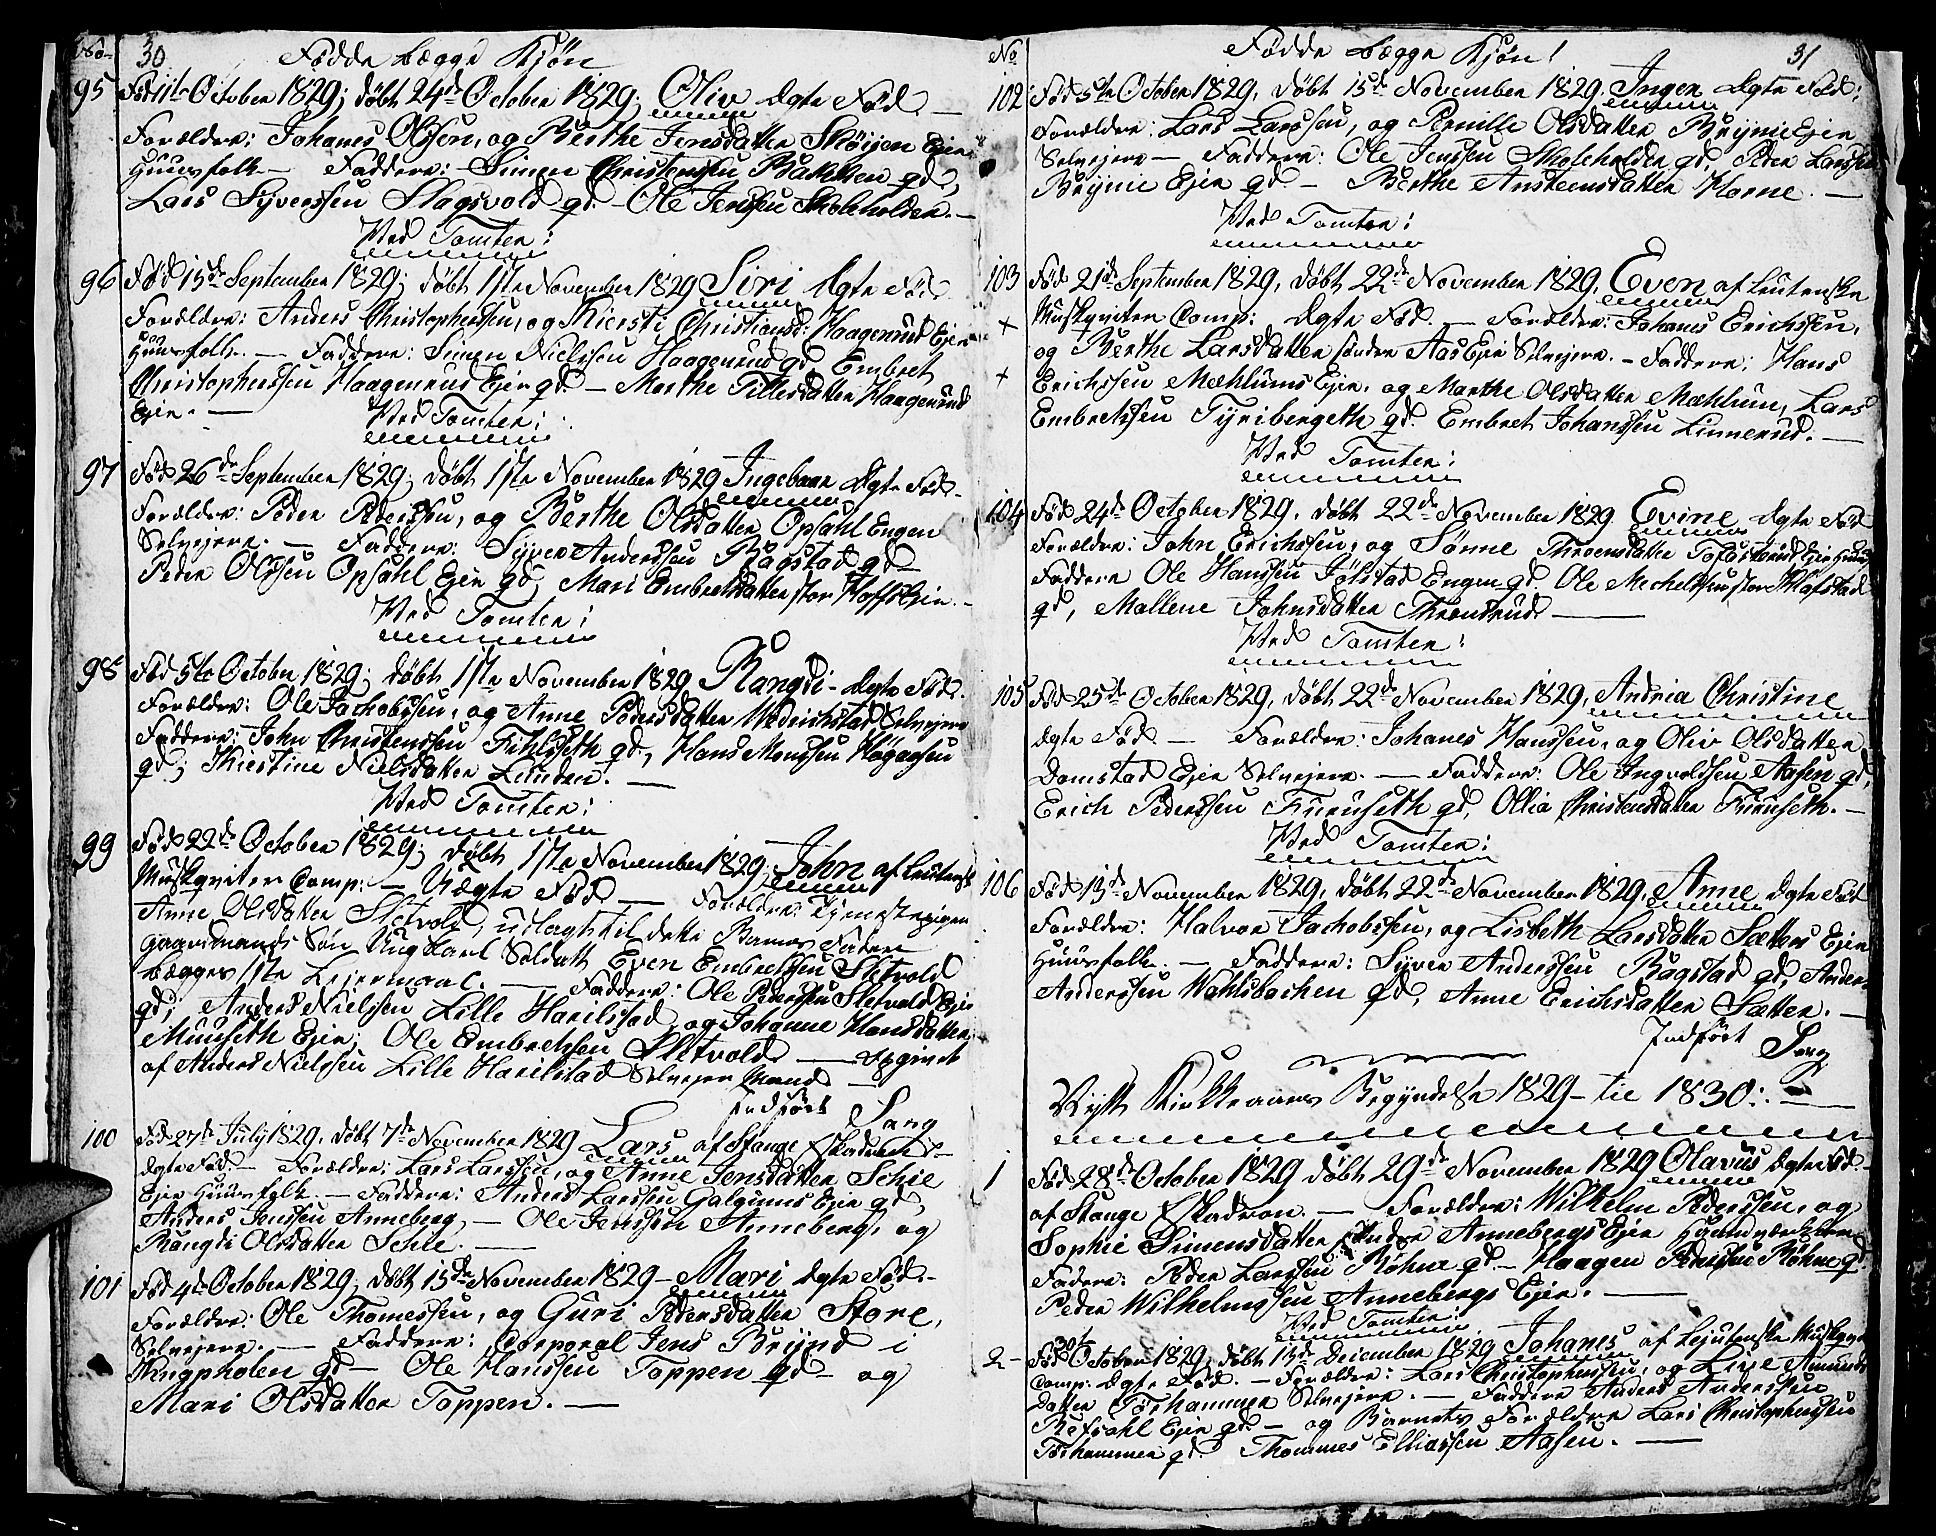 No 30 Fødde bægge Kjøn
95 Fød 11te October 1829; døbt 24de October 1829; Oliv ægte Fød. —
Forældre: Johanes Olssen, og Berthe Jensdatter Skøijen Eier
Huusfolk — Faddere: Simen Christenssen Baketten gd,
Lars Syverssen Slagsvold gd. — Ole Jenssen Skoleholder. —
Ved Tomten:
96 Fød 15de September 1829; døbt 1ste November 1829 Siri ægte Fød
Forældre: Anders Christophersen, og Kiersti Christiansd: Haagenrud Ejer
Huusfolk. — Faddere: Simen Nielssen Haagenrud gd, Embret
Christophersen Haagenrud Ejer gd. — Marthe Tillesdatter Haagenrud
Ejer. —
Ved Tomten:
97 Fød 26de September 1829; døbt 1ste November 1829 Ingebaar ægte Fød —
Forældre: Peder Pederssen, og Berthe Olsdatter Opsahl Engen
Selvejere. — Faddere: Syver Anderssen Bagstad gd
Peder Olssen Opsahl Ejer gd, Mari Embretsdatter stor Hoffs Ejer. —
Ved Tomten:
98 Fød 5te October 1829; døbt 1ste November 1829 Rangdi — ægte Fød.
Forældre: Ole Jachobssen, og Anne Pedersdatter Wedrichstad Selvejere
Faddere: John Christenssen Fihlseth gd, Hans Monssen Høgaasen
gd; Kiestine Nielsdatter Lunden. —
Ved Tomten:
99 Fød 22de October 1829; døbt 1ste November 1829; John af Leutensk
Muskqviter Comp: — Uægte Fød — Forældre: Tjenestepigen
Anne Olsdatter Sletvold, udlagt til dette Barns Fader
gaardmands Søn Ungkarl Soldatt Even Embretssen Sletvold
bægges 1ste Lejermaal. — Faddere: Ole Pederssen Sletvold Ejer
gd; Anders Nielssen Lille Harilstad, og Johanne Hansdatter
Muuseth Ejer; Ole Embretssen Sletvold — Opgivet
af Anders Nielssen Lille Harilstad Selvejer Mand —
Indført Sang
100 Fød 27de July 1829, døbt 7de November 1829 Lars af Stange Eskadron —
ægte Fød. — Forældre: Lars Larssen, og Anne Jensdatter Sehle
Ejer Huusfolk. — Faddere: Anders Larssen Galgums Ejer gd,
Anders Jenssen Anneberg, — Ole Jenssen Anneberg, og
Rangdi Olsdatter Sehle. —
101 Fød 4de October 1829; døbt 15de November 1829 — Mari ægte Fød. —
Forældre: Ole Thomessen, og Guri Pedersdatter Store,
Selvejere. — Faddere: Corporal Jens Brynd i
Kragholen gd — Ole Hanssen Toppen gd — og
Mari Olsdatter Toppen. —
No Fødde bægge Kjøn! 31
102 Fød 5te October 1829, døbt 15de November 1829, Inger ægte Fød:
Forældre: Lars Larssen, og Pernille Olsdatter Brynie Ejer
Selvejere — Faddere: Ole Jenssen Skoleholder gd, Peder Larssen
Brynie Ejer gd — Berthe Ansteensdatter Horne. —
Ved Tomten:
103 Fød 21de September 1829, døbt 22de November 1829, Even af Leutenske
+ Muskqviter Comp: ægte Fød. — Forældre: Johanes Erichssen,
og Berthe Larsdatter søndre Aas Ejer Selvejere. — Faddere: Hans
+ Erichssen Mæhlums Ejer, og Marthe Olsdatter Mæhlum, Lars
Embretssen Tyribergeth gd. Embret Johanssen Linnerud. —
Ved Tomten:
104 Fød 24de October 1829, døbt 22de November 1829 Evine ægte Fød
Forældre: John Erichssen, og Sønne Throensdatter
Faddere Ole Hanssen Jølstad Engen gd, Ole Michelssen stor Klafstad
gd, Mallene Johnsdatter Throndrud —
Ved Tomten:
105 Fød 25de October 1829, døbt 22de November 1829, Andria Christine
ægte Fød. — Forældre: Johanes Hanssen, og Oliv Olsdatter
Domstad Ejer Selvejere. — Faddere: Ole Ingvoldsen Aasen gd,
Erich Pederssen Furuseth gd, Ollia Christensdatter Furuseth. —
Ved Tomten:
106 Fød 13de November 1829, døbt 22de November 1829, Anne ægte Fød
Forældre: Halvor Jachobssen, og Lisbeth Larsdatter Sætters Ejer
Huusfolk. — Faddere: Syver Anderssen Bagstad gd, Anders
Anderssen Wahlsbachen gd, Anne Erichsdatter Sætter. —
Indført Sang
Nytt Kirkkeaars Begyndelse 1829 — til 1830:. —
1 Fød 28de October 1829 døbt 29de November 1829 Olavus ægte Fød —
af Stange Eskadron. — Forældre: Wilhelm Pederssen, og
Sophie Simensdatter søndre Annebergs Ejer
Fadere: Peder Larssen Røhne gd — Haagen Pederssen Røhne gd
Peder Wilhelmssen Annebergs Ejer. —
Ved Tomten:
2 — Fød 30te October 1829, døbt 13de December 1829 Johanes af Lejutenske Muskqviter
Comp: ægte Fød. — Forældre: Lars Christophersen, og Live Amunds
datter Torhammer Selvejere. — Faddere Anders Anderssen
Refsahl Ejer gd — og Barnets Forældre Lars Christophersen
Torhammer gd. Thommes Elliassen Aasen. —